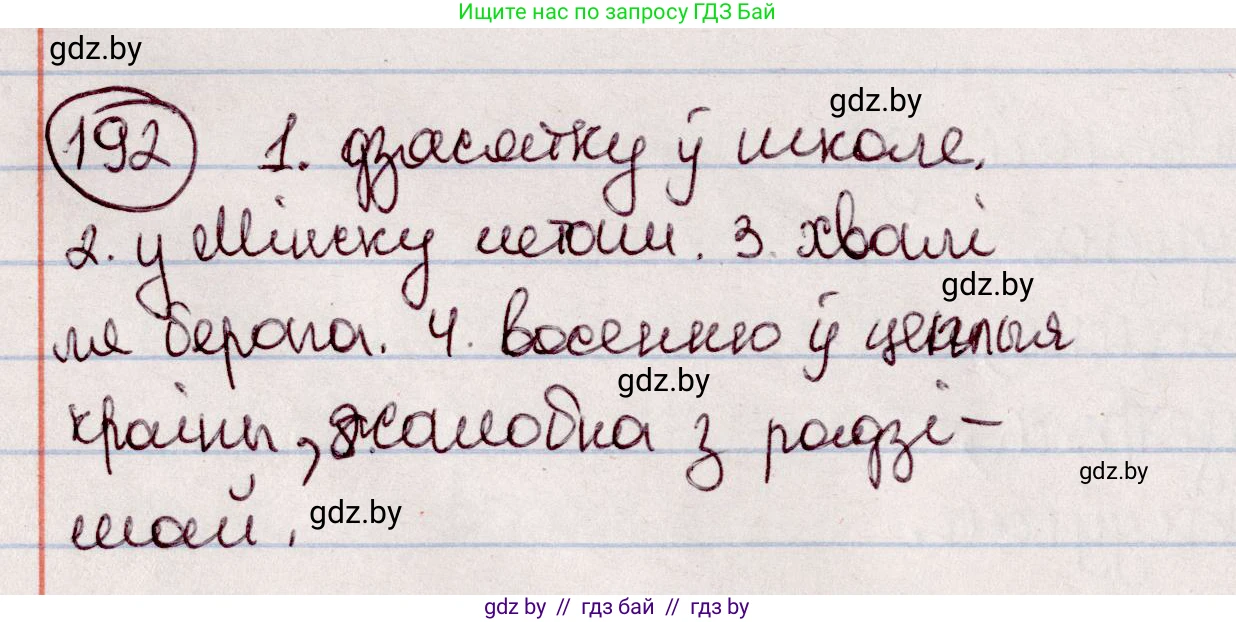 Ищите нас по запросу ГДЗ Бай
gdz.by
gdz.by
192 1. дзясятку ў школе.
2. у Мінску летам. 3. хвалі
gdz.by
ля берага. 4. восенню ў цёплыя
gdz.by
краіны, жалобна з радзі-
gdz.by
май.
gdz.by
gdz by // гдз бай // гдз by